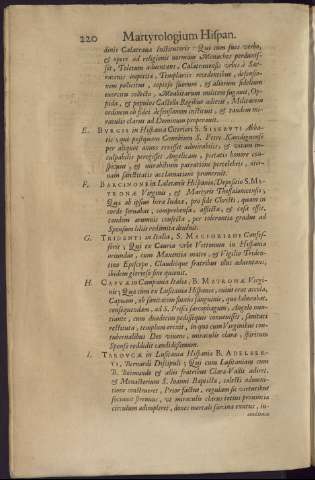 220 Martyrologium Hispan.
dinis Calatraua Institutoris: Qui cum suos verbo,
& opere ad religionis normam Monachos perduxis-
set, Toletum aduentans, Calatrauensis vrbis à Sar-
racenis impetitæ, Templariis recedentibus, defensio-
nem pollicitus, copiis suorum, & aliorum fidelium
exercitu collecto, Mauritanum militem fugauit, Op-
pida, & populos Castellæ Regibus adiecit, Militarem
ordinem ob fidei defensionem instituit, & tandem mi-
raculis clarus ad Dominum properauit.
E. BVRGIS in Hispania Citeriori S. SISEBVTI Abba-
tis; qui postquam Cœnobium S. Petri Karadignensis
per aliquot annos rexisset admirabilis, & vitam in-
culpabilis peregisset Angelicam, portatis honore con-
spicuus, & mirabilium patratione præcelebris, æter-
nam sanctitatis acclamationem promeruit.
F. BARCINONE in Laletanis Hispaniæ, Depositio S. MA-
TRONÆ Virginis, & Martyris Thessalonicensis;
Quæ ab ipsius hera Iudæa, pro fide Christi, quam in
corde seruabat, comprehensa, afflicta, & cæsa esset,
tandem ærumnis confecta, per tolerantiæ gradus ad
Sponsum lætis redimita deuenit.
G. TRIDENTI in Italia, S. MAGORIANI Confes-
soris; Qui ex Cauria vrbe Vettonum in Hispania
oriundus, cum Maxentia matre, & Vigilio Triden-
tino Episcopo, Claudióque fratribus illuc aduentans,
ibidem gloriosè fine quieuit.
H. CAPVÆ in Campania Italiæ, B. MATRONÆ Virgi-
nis; Quæ cum ex Lusitania Hispaniæ, cuius erat accola,
Capuam, ob sanitatem fluxus sanguinis, quo laborabat,
consequendam, ad S. Prisci sarcophagum, Angelo mo-
nitante, cum duodecim pedissequis conuenisset, sanitati
restituta, templum erexit, in quo cum Virginibus con-
tubernalibus Deo viuens, miraculis clara, spiritum
Sponso reddidit candidissimum.
I. TAROVCÆ in Lusitania Hispaniæ B. ADELBER-
TI, Bernardi Discipuli; Qui cum Lusitaniam cum
B. Boemundo & aliis fratribus Clara-Vallis adiret,
& Monasterium S. Ioanni Baptistæ, cœlesti admoni-
tione construeret, Prior factus, regulam sic virtutibus
sociauit strenuus, vt miraculis clarus totius prouinciæ
circulum adimpleret, donec mortali sarcina exutus, in-